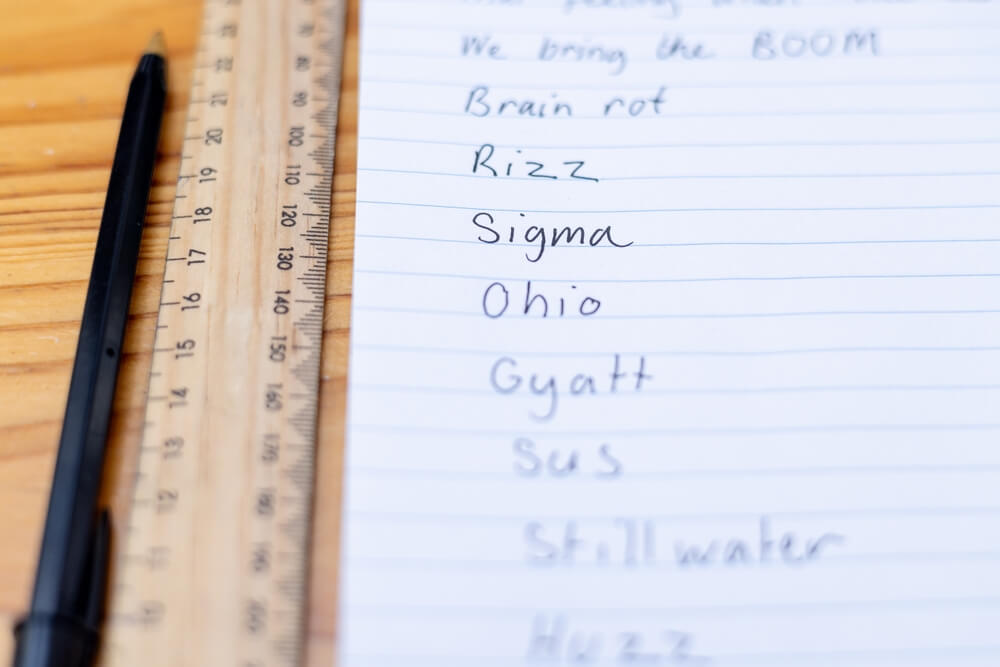 We bring the BOOM
Brain rot
Rizz
Sigma
Ohio
Gyatt
Sus
Still water
Huzz
22
21
20
19
18
17
16
15
14
13
12
11
10
80
90
100
110
120
130
140
150
160
170
180
190
200